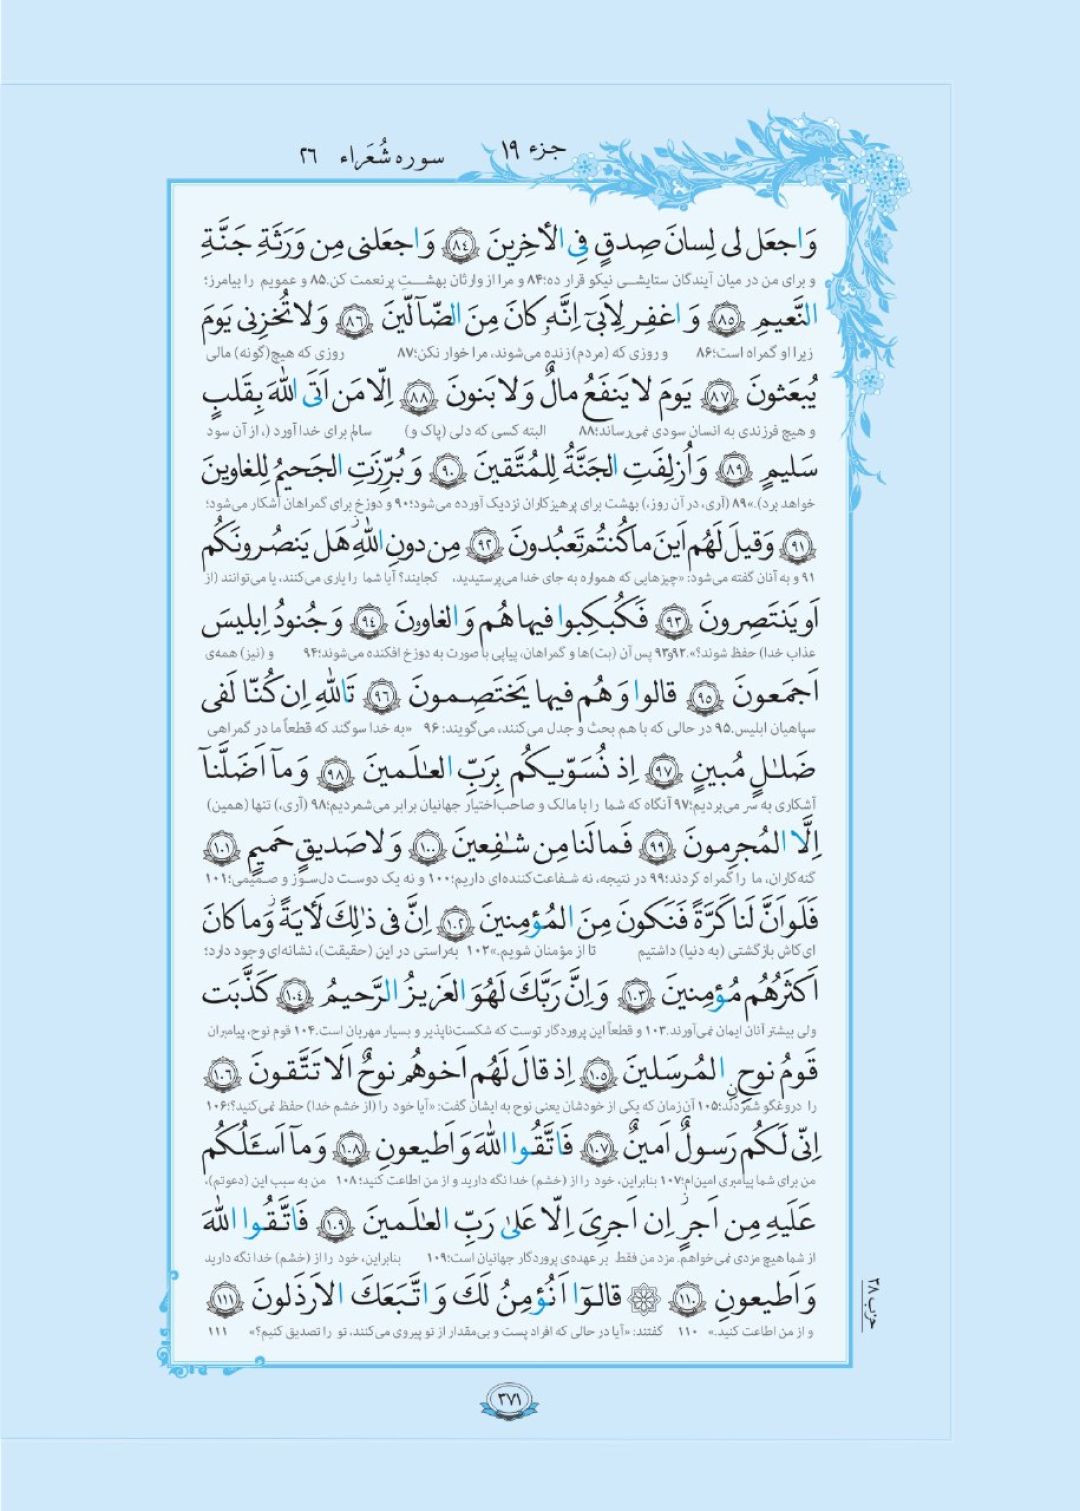 جزء ۱۹
سوره شُعَراء ۲۶
وَ اجعَل لی لِسانَ صِدقٍ فِی الأخِرینَ ﴿۸۴﴾ وَ اجعَلنی مِن وَرَثَةِ جَنَّةِ
و برای من در میان آیندگان ستایشی نیکو قرار ده؛۸۴ و مرا از وارثان بهشتِ پرنعمت کن.۸۵ و عمویم را بیامرز؛
النَّعیمِ ﴿۸۵﴾ وَ اغفِر لِاَبی اِنَّهٗ کانَ مِنَ الضّآلّینَ ﴿۸۶﴾ وَ لا تُخزِنی یَومَ
زیرا او گمراه است؛۸۶ و روزی که (مردم) زنده می‌شوند، مرا خوار نکن؛۸۷ روزی که هیچ (گونه) مالی
یُبعَثونَ ﴿۸۷﴾ یَومَ لا یَنفَعُ مالٌ وَ لا بَنونَ ﴿۸۸﴾ اِلّا مَن اَتَی اللّٰهَ بِقَلبٍ
و هیچ فرزندی به انسان سودی نمی‌رساند؛۸۸ البته کسی که دلی (پاک و) سالم برای خدا آورد (، از آن سود
سَلیمٍ ﴿۸۹﴾ وَ اُزلِفَتِ الجَنَّةُ لِلمُتَّقینَ ﴿۹۰﴾ وَ بُرِّزَتِ الجَحیمُ لِلغاوینَ
خواهد برد).»۸۹ (آری، در آن روز،) بهشت برای پرهیزکاران نزدیک آورده می‌شود؛۹۰ و دوزخ برای گمراهان آشکار می‌شود؛
﴿۹۱﴾ وَ قیلَ لَهُم اَینَ ما کُنتُم تَعبُدونَ ﴿۹۲﴾ مِن دونِ اللّٰهِ هَل یَنصُرونَکُم
۹۱ و به آنان گفته می‌شود: «چیزهایی که همواره به جای خدا می‌پرستیدید، کجایند؟ آیا شما را یاری می‌کنند، یا می‌توانند (از
اَو یَنتَصِرونَ ﴿۹۳﴾ فَکُبکِبوا فیها هُم وَ الغاوٗنَ ﴿۹۴﴾ وَ جُنودُ اِبلیسَ
عذاب خدا) حفظ شوند؟».۹۲و۹۳ پس آن (بت)ها و گمراهان، پیاپی با صورت به دوزخ افکنده می‌شوند؛۹۴ و (نیز) همه‌ی
اَجمَعونَ ﴿۹۵﴾ قالوا وَ هُم فیها یَختَصِمونَ ﴿۹۶﴾ تَاللّٰهِ اِن کُنّا لَفی
سپاهیان ابلیس.۹۵ در حالی که با هم بحث و جدل می‌کنند، می‌گویند:۹۶ «به خدا سوگند که قطعاً ما در گمراهی
ضَلٰلٍ مُبینٍ ﴿۹۷﴾ اِذ نُسَوّیکُم بِرَبِّ العٰلَمینَ ﴿۹۸﴾ وَ مآ اَضَلَّنآ
آشکاری به سر می‌بردیم؛۹۷ آنگاه که شما را با مالک و صاحب‌اختیار جهانیان برابر می‌شمردیم؛۹۸ (آری،) تنها (همین)
اِلَّا المُجرِمونَ ﴿۹۹﴾ فَما لَنا مِن شٰفِعینَ ﴿۱۰۰﴾ وَ لا صَدیقٍ حَمیمٍ ﴿۱۰۱﴾
گنه‌کاران، ما را گمراه کردند؛۹۹ در نتیجه، نه شفاعت‌کننده‌ای داریم؛۱۰۰ و نه یک دوست دل‌سوز و صمیمی؛۱۰۱
فَلَو اَنَّ لَنا کَرَّةً فَنَکونَ مِنَ المُؤمِنینَ ﴿۱۰۲﴾ اِنَّ فی ذٰلِکَ لَأیَةً وَ ما کانَ
ای کاش بازگشتی (به دنیا) داشتیم تا از مؤمنان شویم.»۱۰۲ به‌راستی در این (حقیقت)، نشانه‌ای وجود دارد؛
اَکثَرُهُم مُؤمِنینَ ﴿۱۰۳﴾ وَ اِنَّ رَبَّکَ لَهُوَ العَزیزُ الرَّحیمُ ﴿۱۰۴﴾ کَذَّبَت
ولی بیشتر آنان ایمان نمی‌آورند.۱۰۳ و قطعاً این پروردگار توست که شکست‌ناپذیر و بسیار مهربان است.۱۰۴ قوم نوح، پیامبران
قَومُ نوحٍ المُرسَلینَ ﴿۱۰۵﴾ اِذ قالَ لَهُم اَخوهُم نوحٌ اَلا تَتَّقونَ ﴿۱۰۶﴾
را دروغگو شمردند؛۱۰۵ آن زمان که یکی از خودشان یعنی نوح به ایشان گفت: «آیا خود را (از خشم خدا) حفظ نمی‌کنید؟؛۱۰۶
اِنّی لَکُم رَسولٌ اَمینٌ ﴿۱۰۷﴾ فَاتَّقُوا اللّٰهَ وَ اَطیعونِ ﴿۱۰۸﴾ وَ مآ اَسـَٔلُکُم
من برای شما پیامبری امین‌ام؛۱۰۷ بنابراین، خود را از (خشم) خدا نگه دارید و از من اطاعت کنید؛۱۰۸ من به سبب این (دعوتم)،
عَلَیهِ مِن اَجرٍ اِن اَجرِیَ اِلّا عَلیٰ رَبِّ العٰلَمینَ ﴿۱۰۹﴾ فَاتَّقُوا اللّٰهَ
از شما هیچ مزدی نمی‌خواهم. مزد من فقط بر عهده‌ی پروردگار جهانیان است؛۱۰۹ بنابراین، خود را از (خشم) خدا نگه دارید
وَ اَطیعونِ ﴿۱۱۰﴾ قالوٓا اَنُؤمِنُ لَکَ وَ اتَّبَعَکَ الاَرذَلونَ ﴿۱۱۱﴾
و از من اطاعت کنید.» ۱۱۰ گفتند: «آیا در حالی که افراد پست و بی‌مقدار از تو پیروی می‌کنند، تو را تصدیق کنیم؟» ۱۱۱
حزب ۳۸
۳۷۱